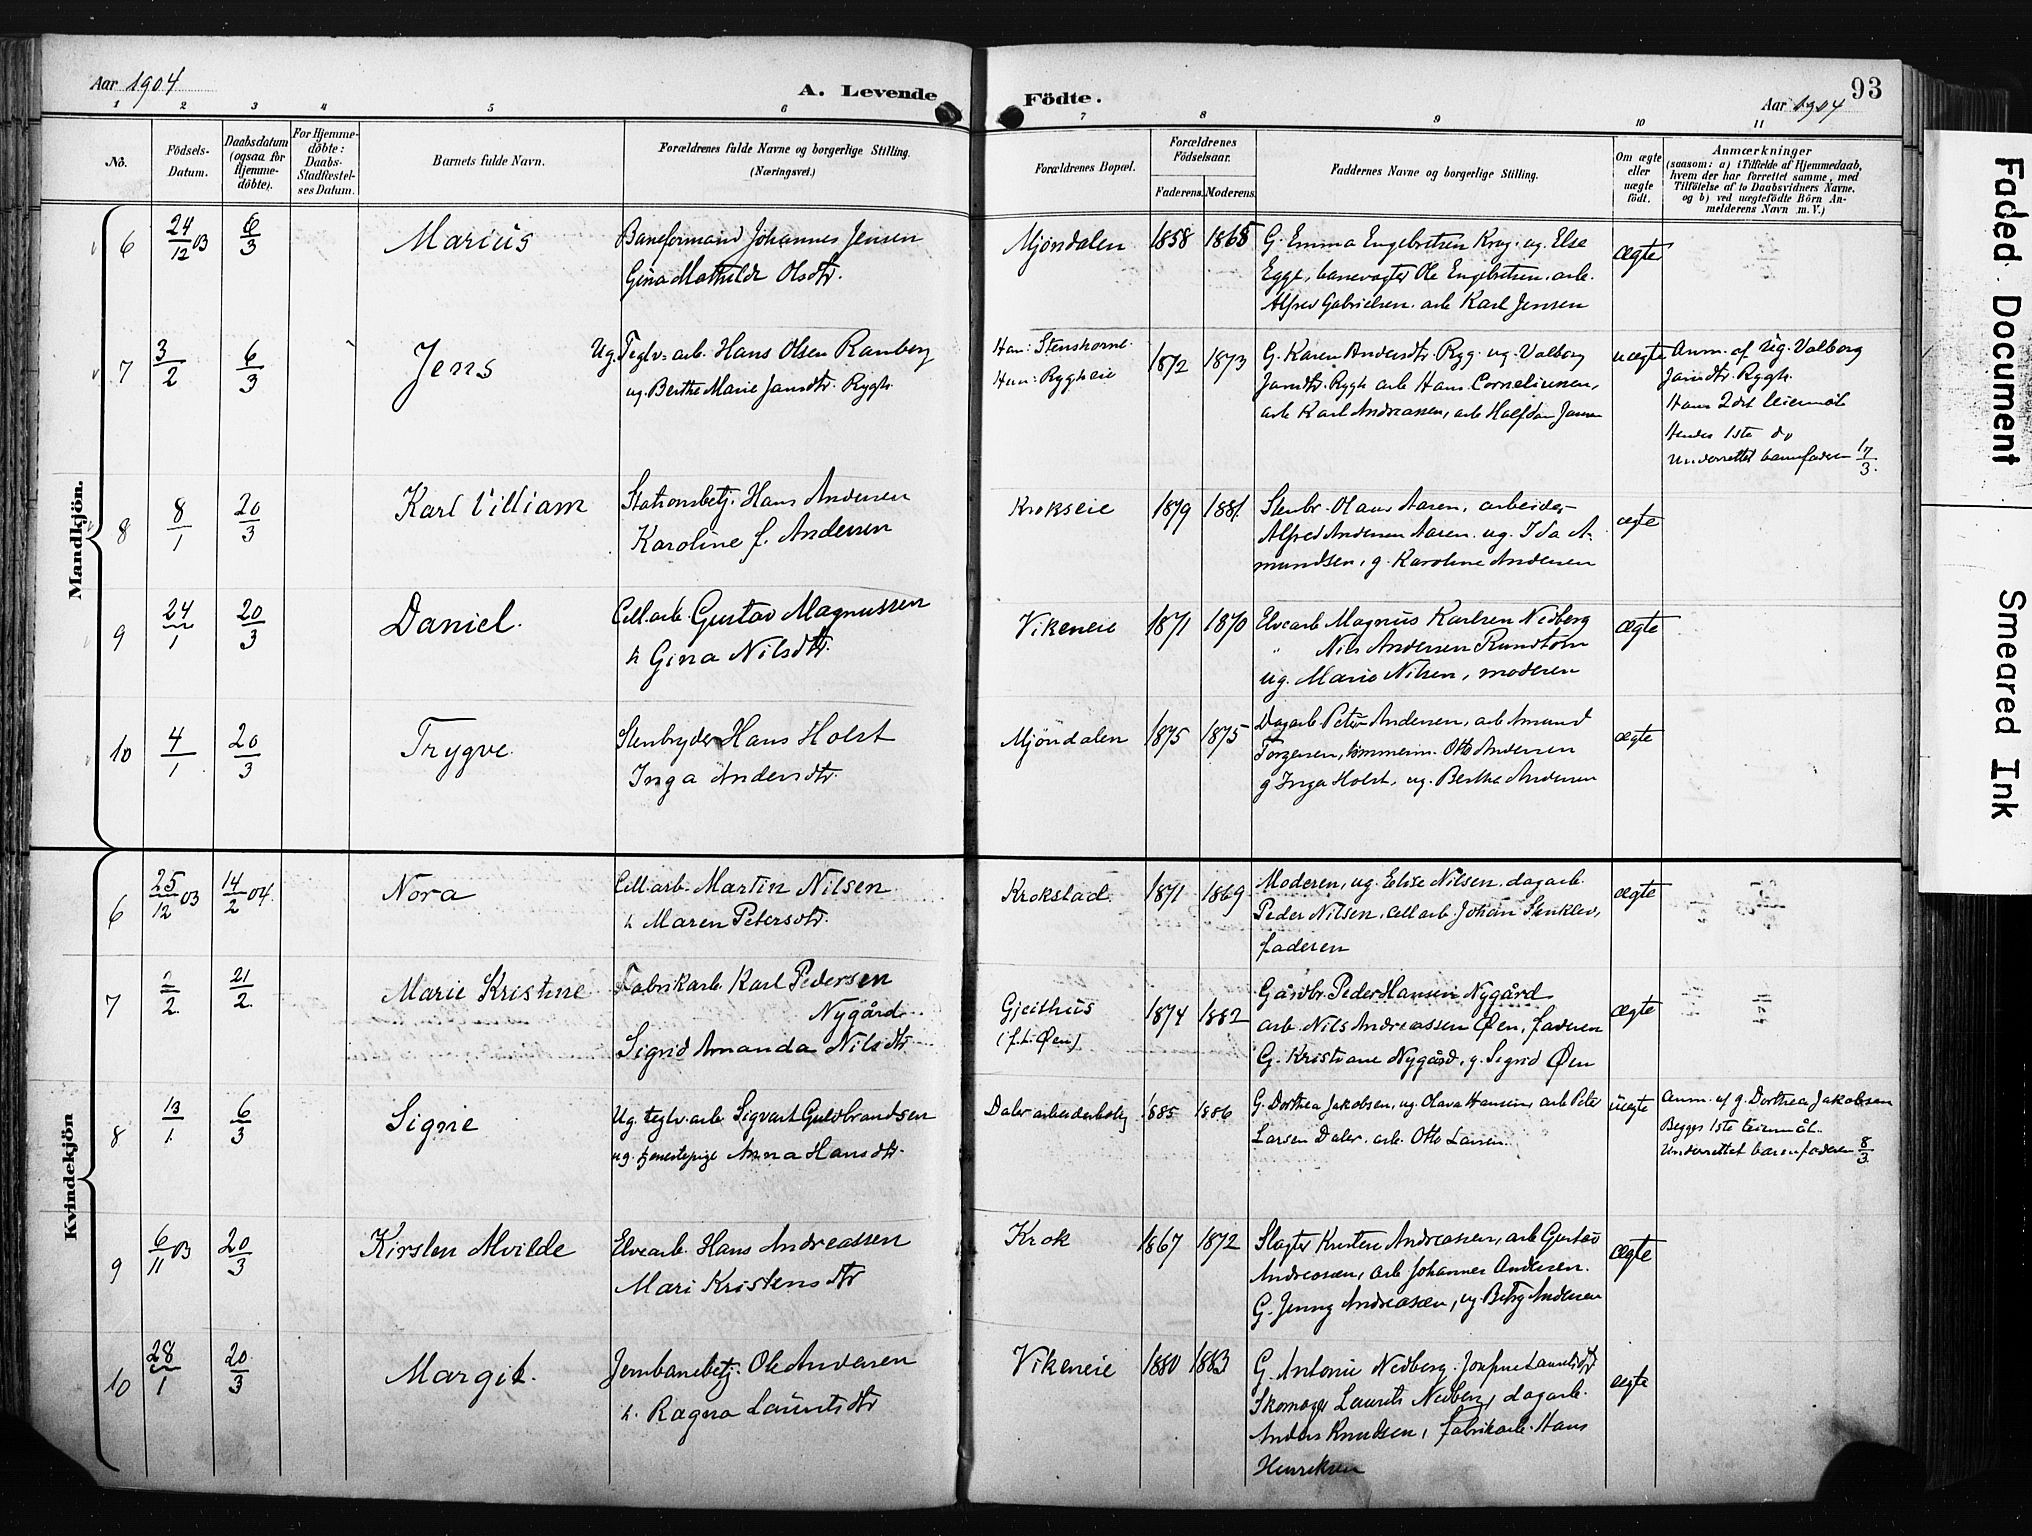 Aar 1904
A. Levende
Födte.
93
Aar 1904
1 2 3 4 5 6 7 8 9 10 11
No.
Födsels-Datum.
Daabsdatum (ogsaa for Hjemmedöbte).
For Hjemmedöbte: Daabs-Stadfæstelses Datum.
Barnets fulde Navn.
Forældrenes fulde Navne og borgerlige Stilling. (Næringsvei.)
Forældrenes Bopæl.
Forældrenes Födselsaar.
Faderens. Moderens.
Faddernes Navne og borgerlige Stilling.
Om ægte eller uægte födt.
Anmærkninger
(saasom: a) i Tilfælde af Hjemmedaab, hvem der har forrettet samme, med Tilföielse af to Daabsvidners Navne, og b) ved uægtefödte Börn Anmelderens Navn m. V.)
Mandkjön.
6 24/12 03 6/3 Marius
Baneformand Johannes Jensen
Gina Mathilde Olsdtr.
Mjöndalen 1858 1865
G. Emma Engebretsen Krog. ug. Else
Egge, banevogter Ole Engebretsen. arb.
Alfred Gabrielsen. arb Karl Jensen
ægte
7 3/2 6/3 Jens
Ug. Teglv. arb. Hans Olsen Ramberg
ug. Berthe Marie Jansdtr. Rygh
Han: Stenshorne
Hun: Rygheie
1872 1873
G. Karen Andersdtr. Rygg. ug. Valborg
Jansdtr. Rygh arb Hans Corneliussen,
arb Karl Andreassen, arb Halfdan Jansen
uægte
Anm. af Ug. Valborg
Jansdtr. Rygh.
Hans 2det leiermål
Hendes 1ste do
Underrettet barnefaderen 17/3.
8 8/1 20/3 Karl Villiam
Stationsbetj. Hans Andersen
Karoline f. Andersen
Krokseie 1879 1881
Stenbr. Olaus Aasen, arbeider
Alfred Andersen Aasen. ug. Ida A-
mundsen, g. Karoline Andersen
ægte
9 24/1 20/3 Daniel.
Cell.arb. Gustav Magnussen
h Gina Nilsdtr.
Vikeneie 1871 1870
Elvearb Magnus Karlsen Nedberg
" Nils Andersen Rundtom
ug. Marie Nilsen, moderen
ægte
10 4/1 20/3 Trygve.
Stenbryder Hans Holst
Inga Andersdtr.
Mjöndalen 1875 1875
Dagarb Peter Andersen, arb Amund
Torgersen, tömmerm. Otto Andersen
g Inga Holst, ug. Berthe Andersen
ægte
Kvindekjön
6 25/12 03 14/2 04. Nora
Cell.arb. Martin Nilsen
h Maren Petersdtr.
Krokstad. 1871 1869
Moderen, ug. Elise Nilsen. dagarb.
Peder Nilsen. cell arb. Johan Stenklev,
faderen
ægte
7 2/2 21/2. Marie Kristine
Fabrikarb. Karl Pedersen
Nygård.
Sigrid Amanda Nilsdtr
Gjeithus
(f.t. Øen)
1874 1882
Gårdbr. Peder Hansen Nygård
arb. Nils Andreassen Øen, faderen
G. Kristiane Nygård, g. Sigrid Øen
ægte
8 13/1. 6/3 Signe
Ug. teglv.arb Sigvart Guldbrandsen
ug. tjenestepige Anna Hansdtr.
Daler arbeiderbolig 1885 1886
G. Dorthea Jakobsen, ug. Olava Hansen, arb Peter
Larsen Daler. arb. Otto Larsen.
uægte
Anm. af g. Dorthea Jakobsen
Begges 1ste leiermål.
Underrettet barnefaderen 8/3
9 6/11 03 20/3 Kirsten Alvilde
Elvearb. Hans Andreassen
Mari Kristensdtr
Krok 1867 1872
Slagter Kristen Andreassen, arb Gustav
Andreassen, arb Johannes Andersen.
G. Jenny Andreassen, ug. Betsy Andersen
ægte
10 28/1 20/3 Margit.
Jernbanebetj. Ole Andersen
h. Ragna Lauritsdtr
Vikeneie 1880 1883
G. Antonie Nedberg. Josefine Lauritsdtr
Skomager Laurits Nedberg, dagarb.
Anders Knudsen, fabrikarb. Hans
Henriksen
ægte
Faded Document
Smeared Ink